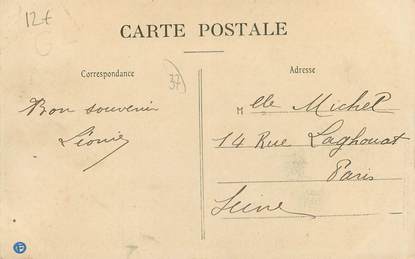 12€
CARTE POSTALE
Correspondance
37
Adresse
Bon souvenir
Léonie
Melle Michel
14 Rue Laghouat
Paris
Seine